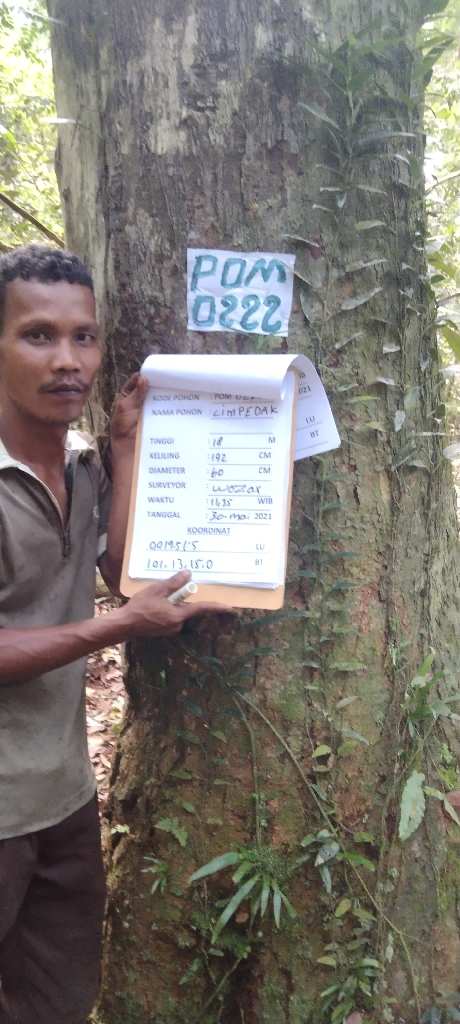 POM
0222
KODE POHON : POM
NAMA POHON : CIMPEDAK
TINGGI : 18 M
KELILING : 192 CM
DIAMETER : 60 CM
SURVEYOR : WOZOX
WAKTU : 11.35 WIB
TANGGAL : 30-mai 2021
KOORDINAT
LU
101.13.15.0 BT
2021
LU
BT